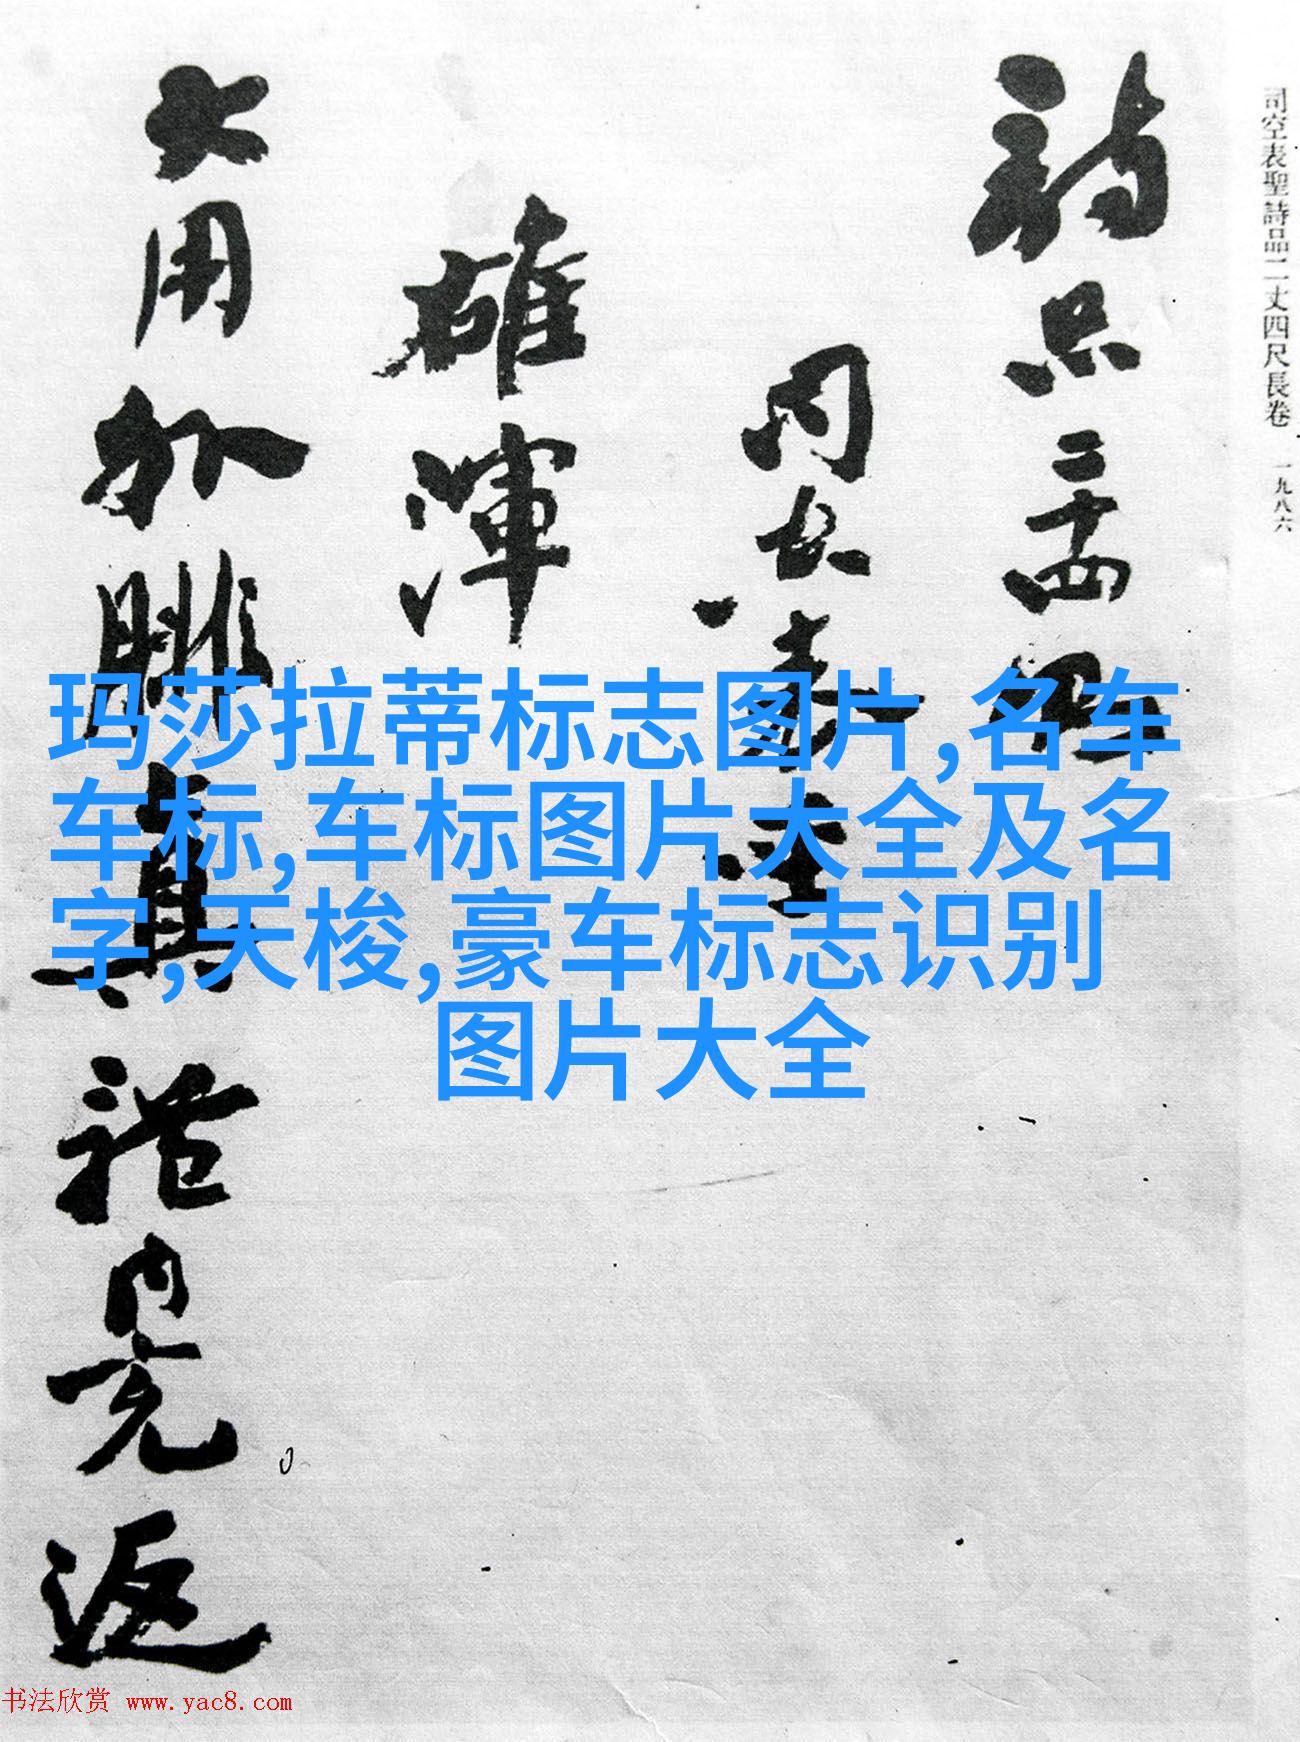 司空表聖詩品二丈四尺長卷 一九八六
詩品二十四則
司空表聖
雄渾
大用外腓真體內充。返
玛莎拉蒂标志图片,名车
车标,车标图片大全及名
字,天梭,豪车标志识别
图片大全
书法欣赏 www.yac8.com